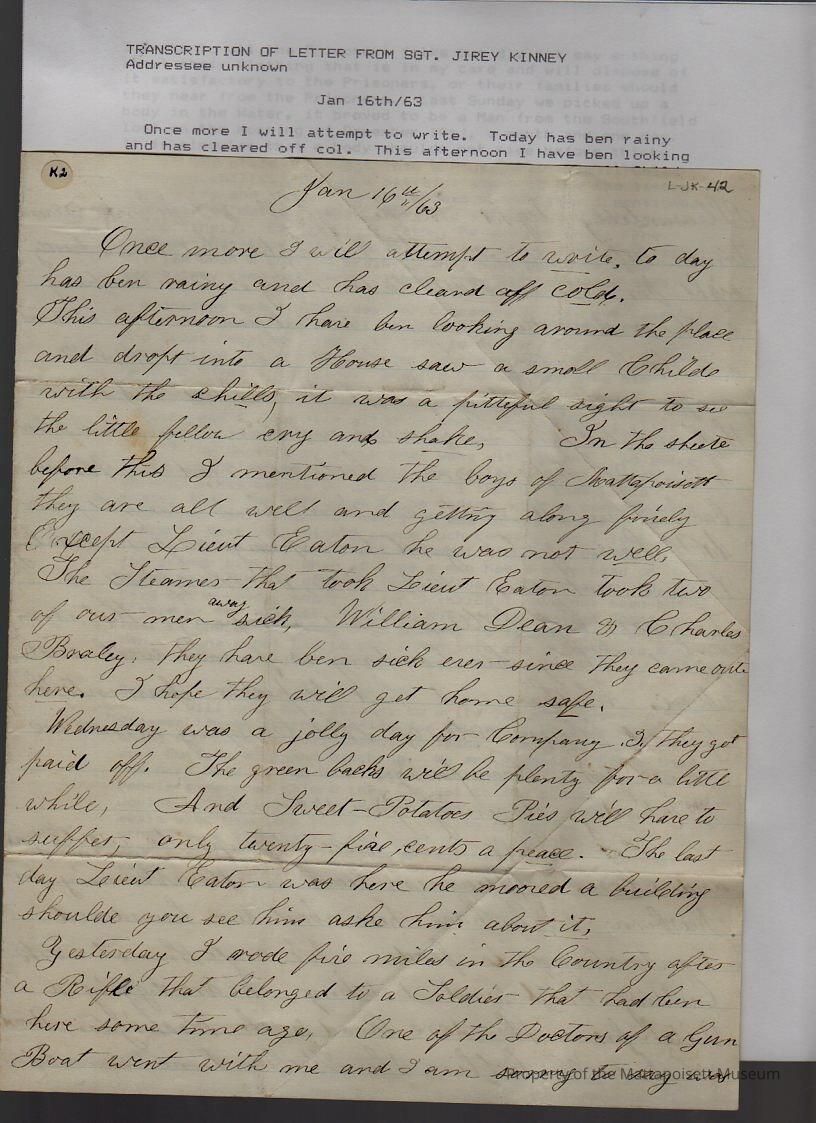 TRANSCRIPTION OF LETTER FROM SGT. JIREY KINNEY
Addressee unknown
Jan 16th/63
Once more I will attempt to write.  Today has ben rainy
and has cleared off col.  This afternoon I have ben looking
K2
L-JK-42
Jan 16th/63
Once more I will attempt to write, to day
has ben rainy and has cleard off cold.
This afternoon I have ben looking around the place
and dropt into a House saw a small Childe
with the chills, it was a pittiful sight to see
the little fellow cry and shake, In the sheete
before this I mentioned the boys of Mattapoisett
they are all well and getting along finely
Except Lieut Eaton he was not well,
The Steamer that took Lieut Eaton took two
of our men away sick, William Dean & Charles
Braley, they have ben sick ever since they came oute
here. I hope they will get home safe.
Wednesday was a jolly day for Company I, they got
paid off. The green backs will be plenty for a little
while, And Sweet-Potatoes Pies will have to
suffer, only twenty-five cents a peace. The last
day Lieut Eaton was here he moored a building
shoulde you see him aske him about it,
Yesterday I rode five miles in the Country after
a Rifle that belonged to a Soldier that had ben
here some time ago, One of the Doctors of a Gun
Boat went with me and I am sorry to say
Property of the Mattapoisett Museum